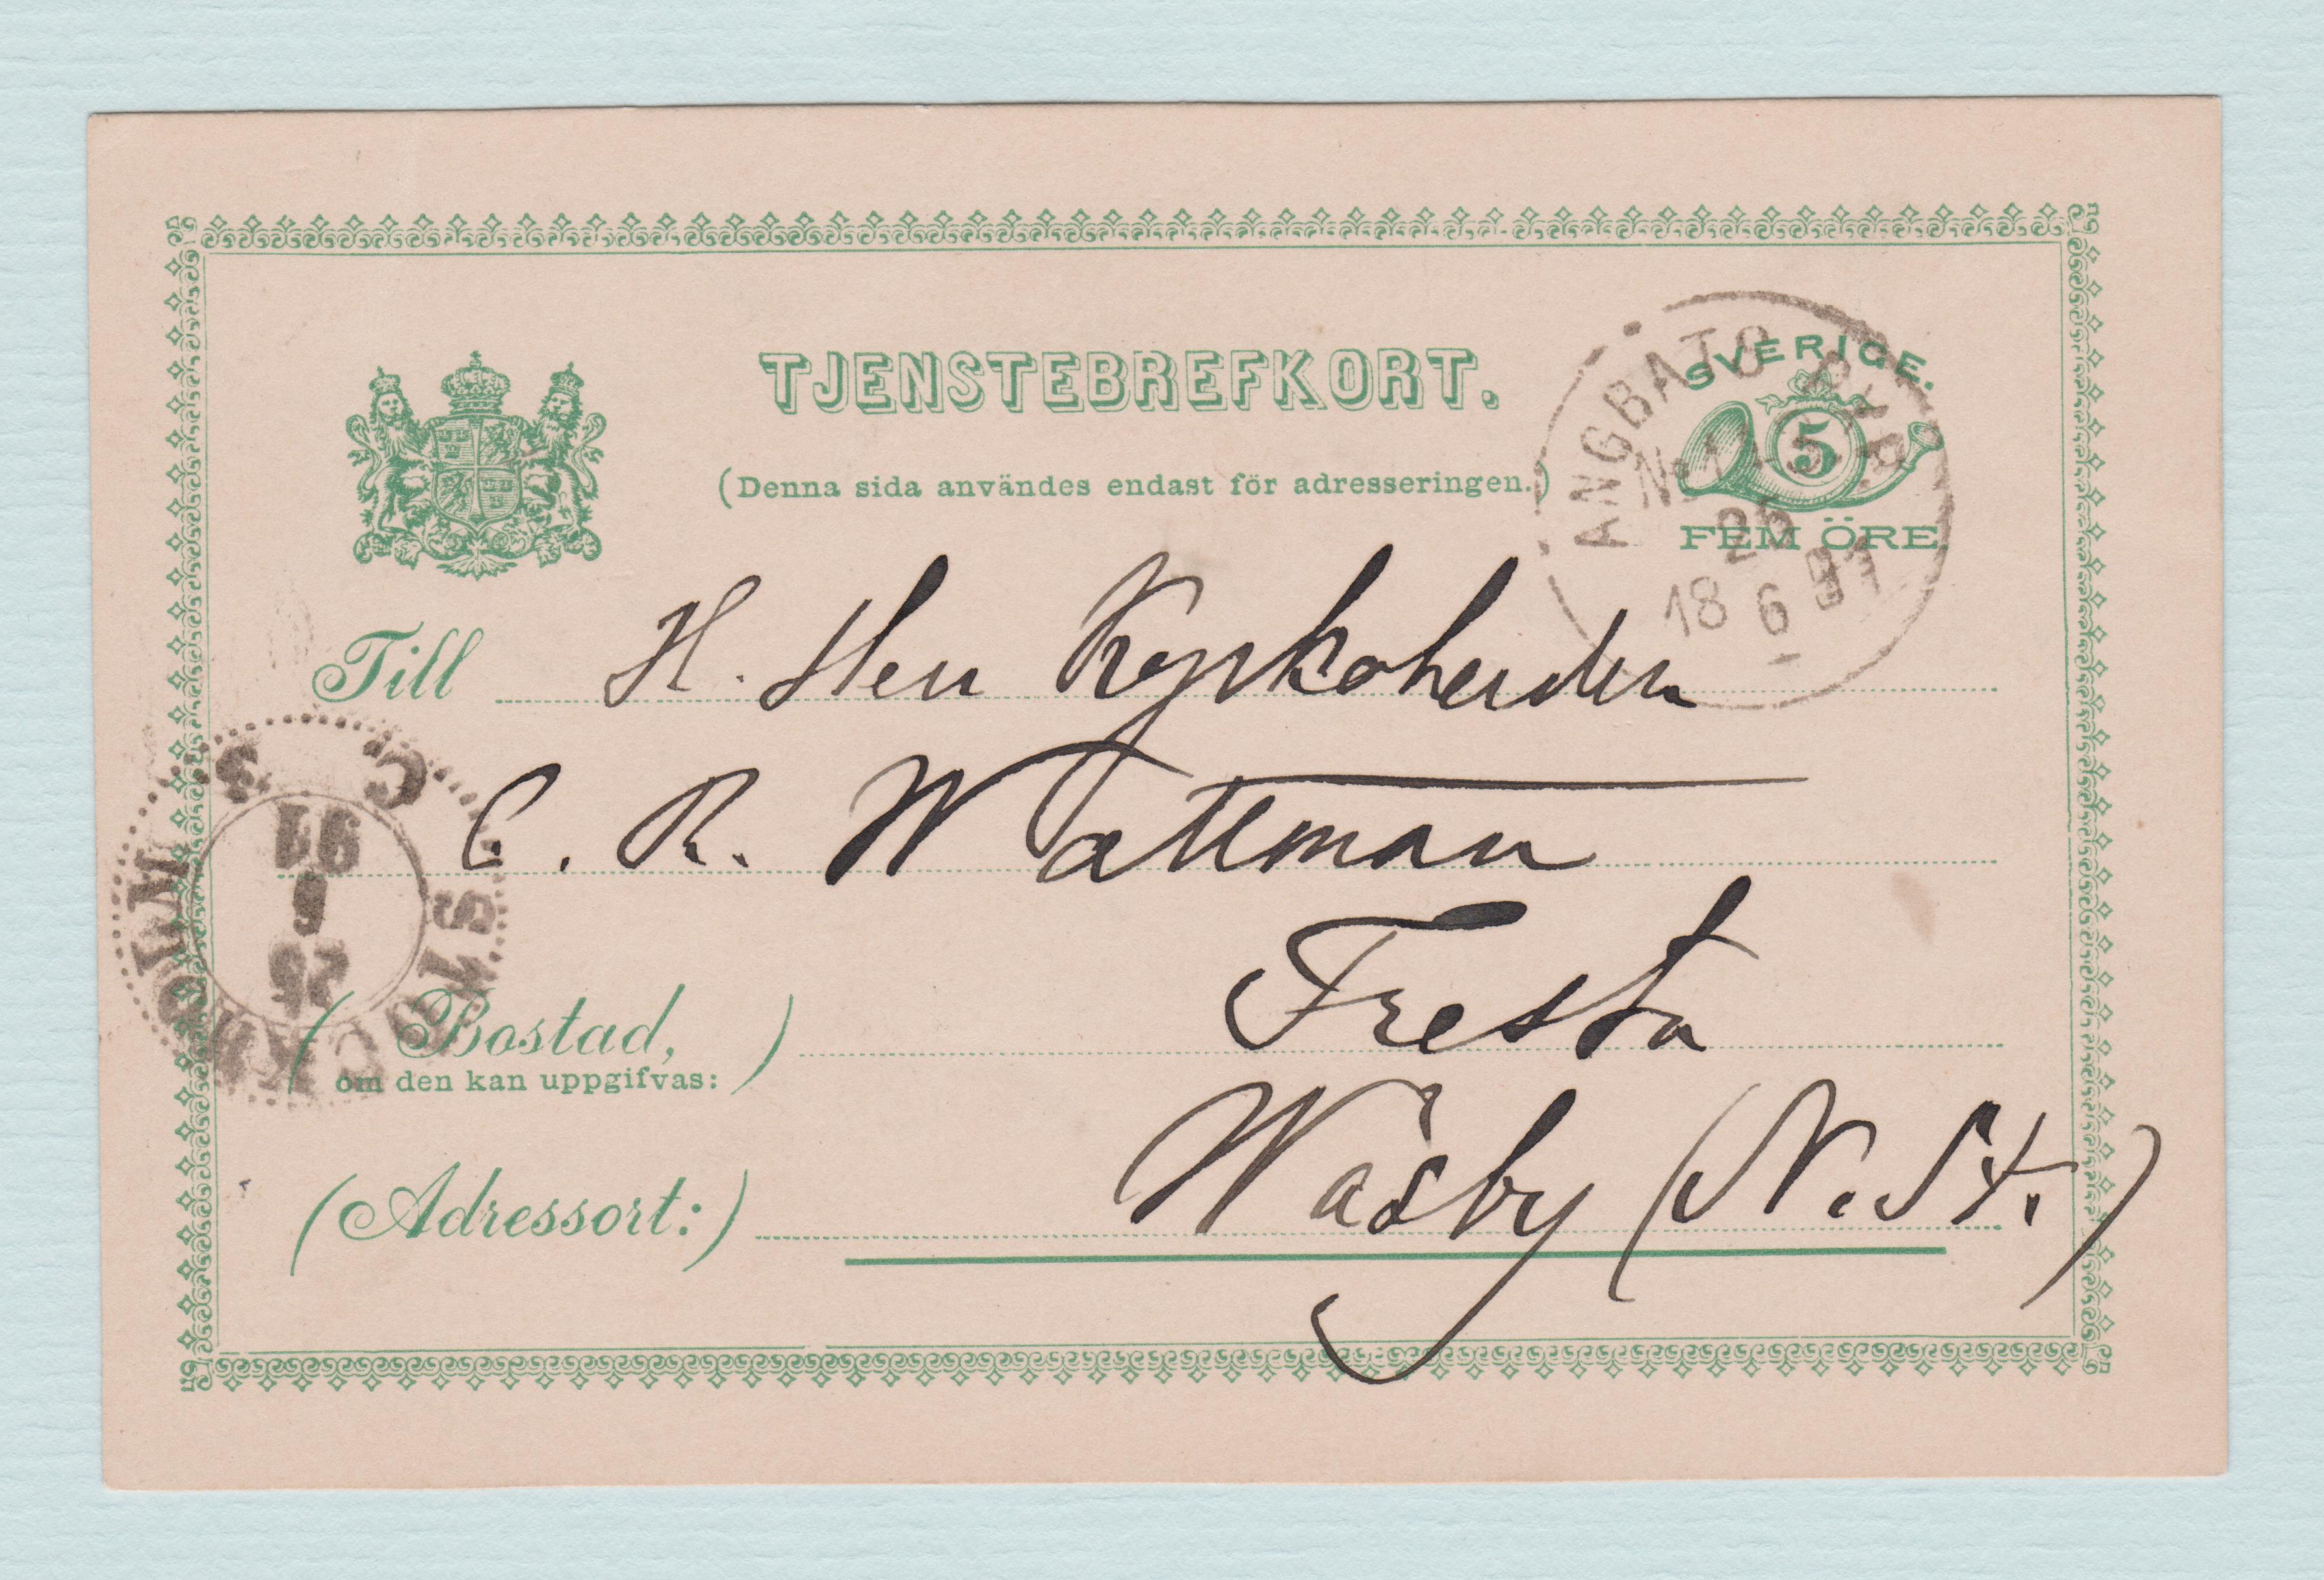 TJENSTEBREFKORT.
(Denna sida användes endast för adresseringen.)
SVERIGE.
5
FEM ÖRE.
ANGBATS PXP
25
18 6 91
Till H. Herr Kyrkoherden
C. R. Wattman
STOCKHOLM
91
6
25
(Bostad,) Fresta
om den kan uppgifvas:
(Adressort:) Wäsby (N. St.)